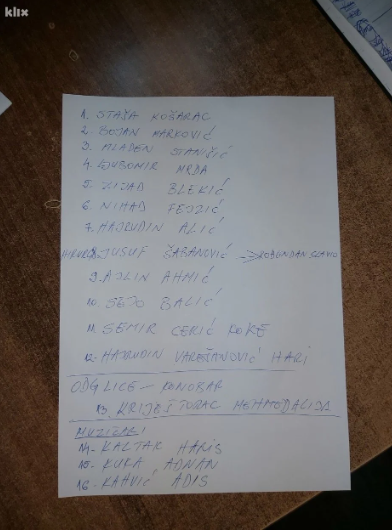 klix
1. STAŠA KOŠARAC
2. BOJAN MARKOVIĆ
3. MLADEN STANIŠIĆ
4. LJUBOMIR MRĐA
5. ZIJAD BLEKIĆ
6. NIHAD FEJZIĆ
7. HAJRUDIN ALIĆ
8. JUSUF ŠABANOVIĆ →
9. AJLIN AHMIĆ
10. SEJO BALIĆ
11. SEMIR CERIĆ KOKE
12. HAJRUDIN VAREŠANOVIĆ HARI
ODG LICE - KONOBAR
13. KRIJEŠTORAC NEHMATDALIJA
MUZIČARI
14- KALTAK HARIS
15- KURA ADNAN
16. KAHVIĆ ADIS